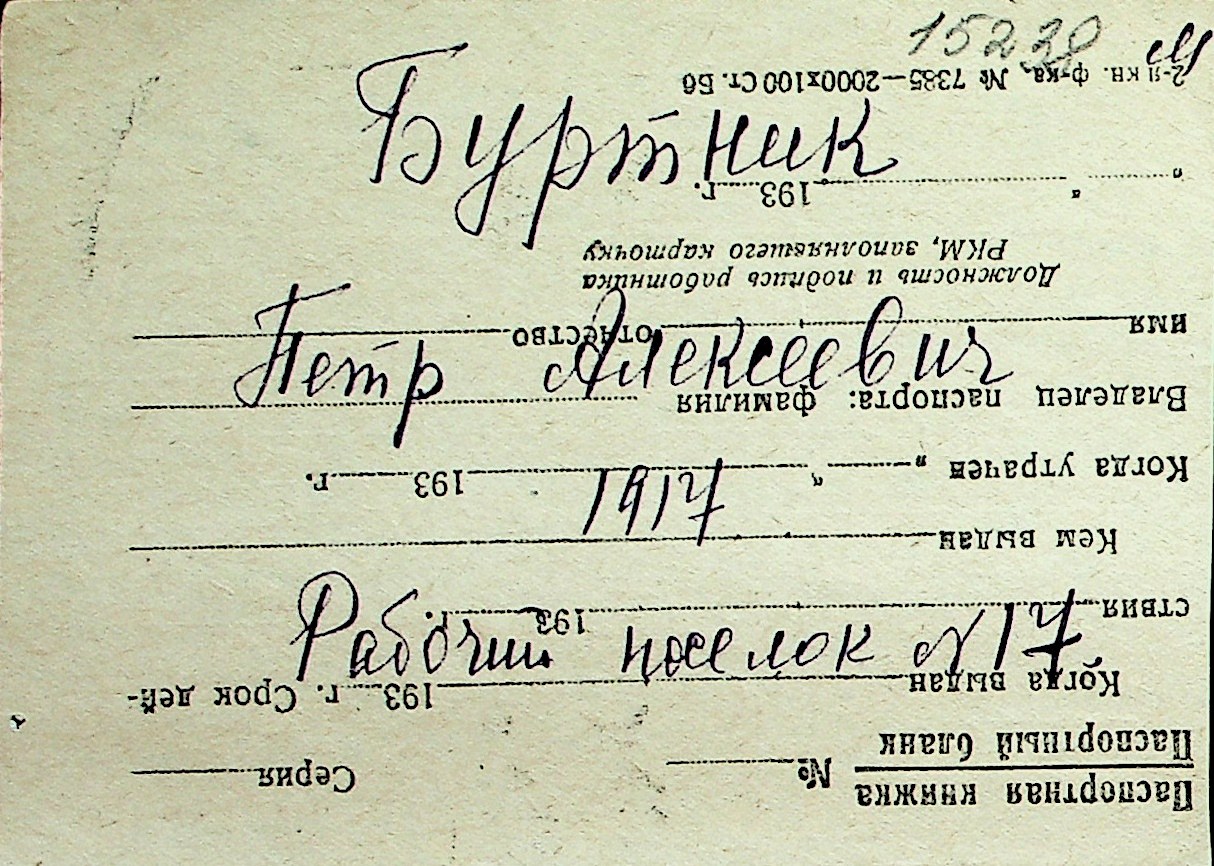 15228 М
Буртник
Петр Алексеевич
1917
Рабочий поселок N 17
Паспортная книжка
Паспортный бланк
№ Серия
Когда выдан 193 г. Срок дей-
ствия 193 г.
Кем выдан
Когда утрачен „ “ 193 г.
Владелец паспорта: фамилия
имя отчество
Должность и подпись работника
РКМ, заполнявшего карточку
„ “ 193 г.
2-я кн. ф-ка № 7385—2000х100 Ст. Бб